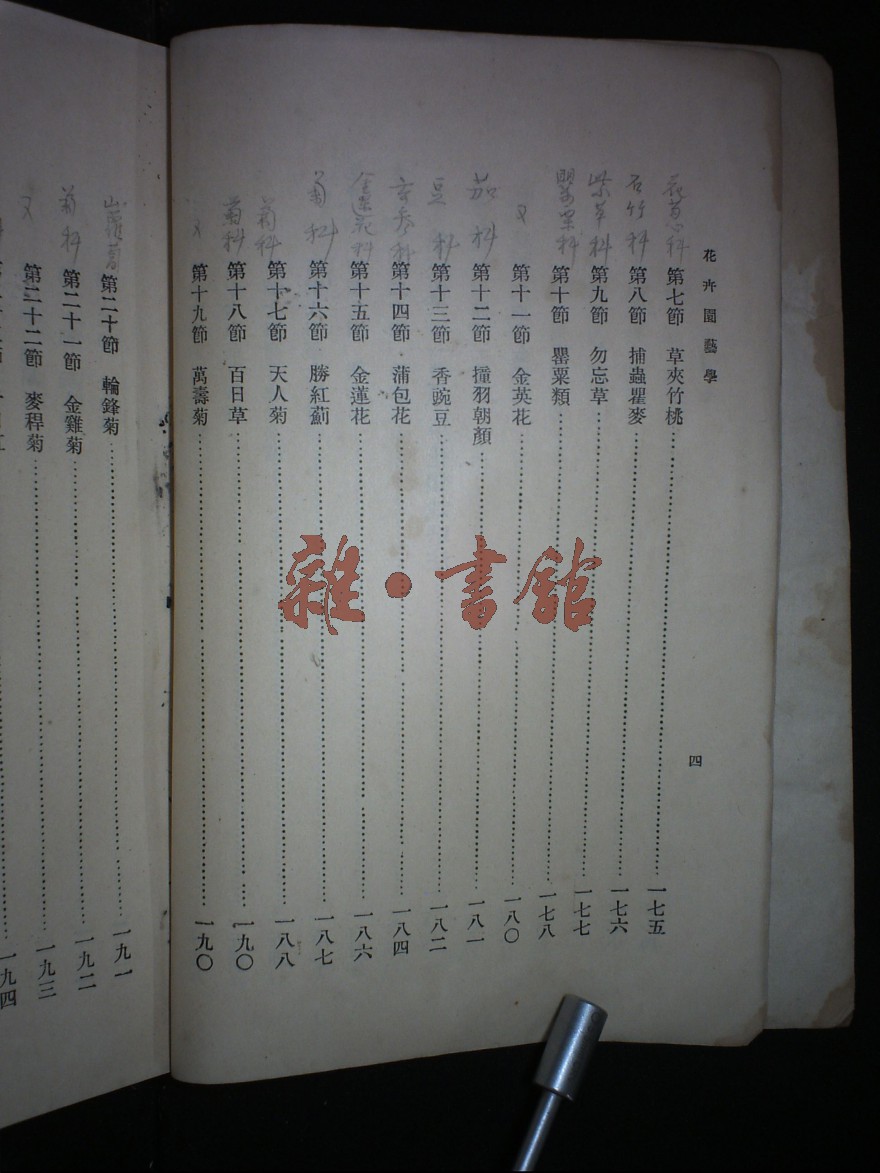 花卉園藝學
四
花荵科
第七節 草夾竹桃 一七五
石竹科
第八節 捕蟲瞿麥 一七六
紫草科
第九節 勿忘草 一七七
罌粟科
第十節 罌粟類 一七八
又
第十一節 金英花 一八〇
茄科
第十二節 撞羽朝顏 一八一
豆科
第十三節 香豌豆 一八二
玄參科
第十四節 蒲包花 一八四
金蓮花科
第十五節 金蓮花 一八六
菊科
第十六節 勝紅薊 一八七
菊科
第十七節 天人菊 一八八
菊科
第十八節 百日草 一九〇
又
第十九節 萬壽菊 一九〇
山蘿蔔
第二十節 輪鋒菊 一九一
菊科
第二十一節 金雞菊 一九二
又
第二十二節 麥稈菊 一九三
一九四
雜·書館